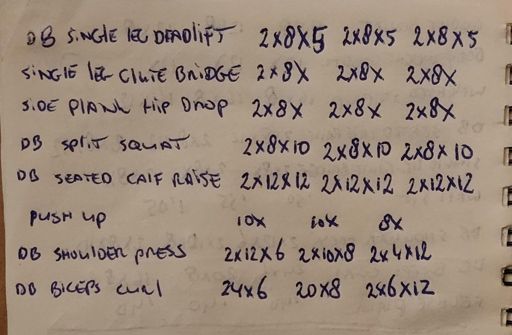 DB SINGLE LEG DEADLIFT 2x8x5 2x8x5 2x8x5
SINGLE LEG GLUTE BRIDGE 2x8x 2x8x 2x8x
SIDE PLANK HIP DROP 2x8x 2x8x 2x8x
DB SPLIT SQUAT 2x8x10 2x8x10 2x8x10
DB SEATED CALF RAISE 2x12x12 2x12x12 2x12x12
PUSH UP 10x 10x 8x
DB SHOULDER PRESS 2x12x6 2x10x8 2x4x12
DB BICEPS CURL 24x6 20x8 2x6x12